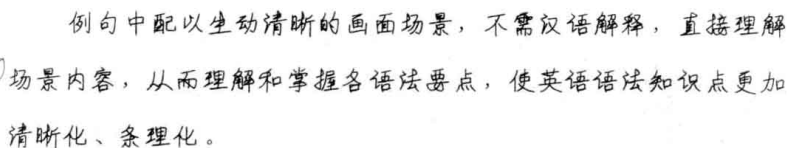 例句中配以生动清晰的画面场景，不需汉语解释，直接理解
场景内容，从而理解和掌握各语法要点，使英语语法知识点更加
清晰化、条理化。